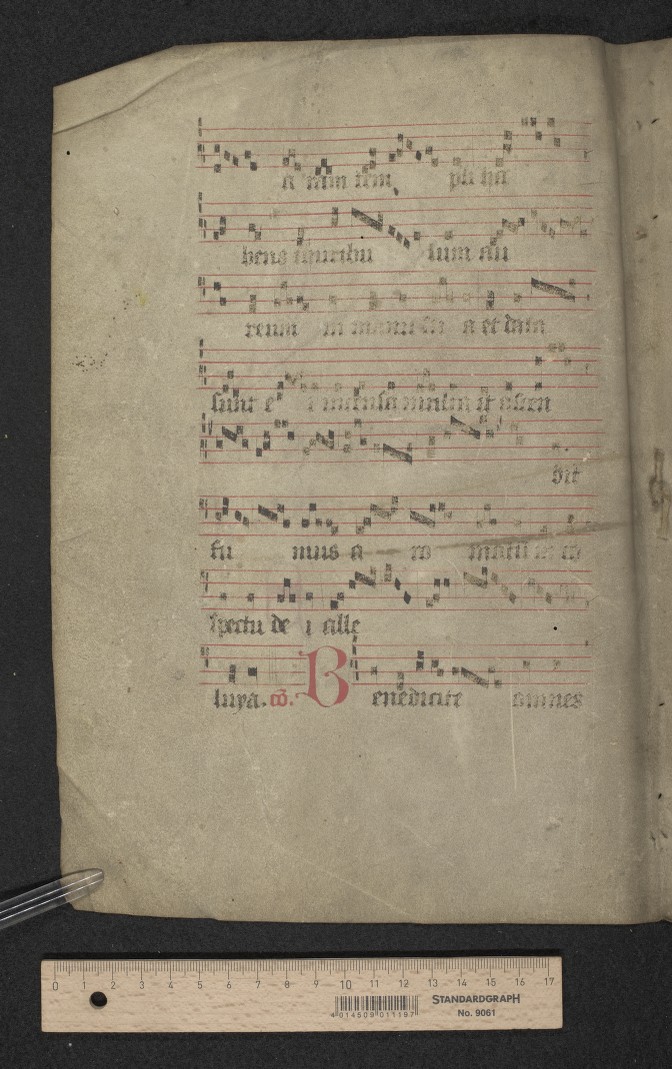 a ram tem pli ha
bens thuribu lum au
reum in manu su a et data
sunt e i incensa multa et ascen
dit
fu mus a ro matu in co
spectu de i alle
luya. co. Benedicite omnes
0 1 2 3 4 5 6 7 8 9 10 11 12 13 14 15 16 17
4 014509 011197
STANDARDGRAPH
No. 9061